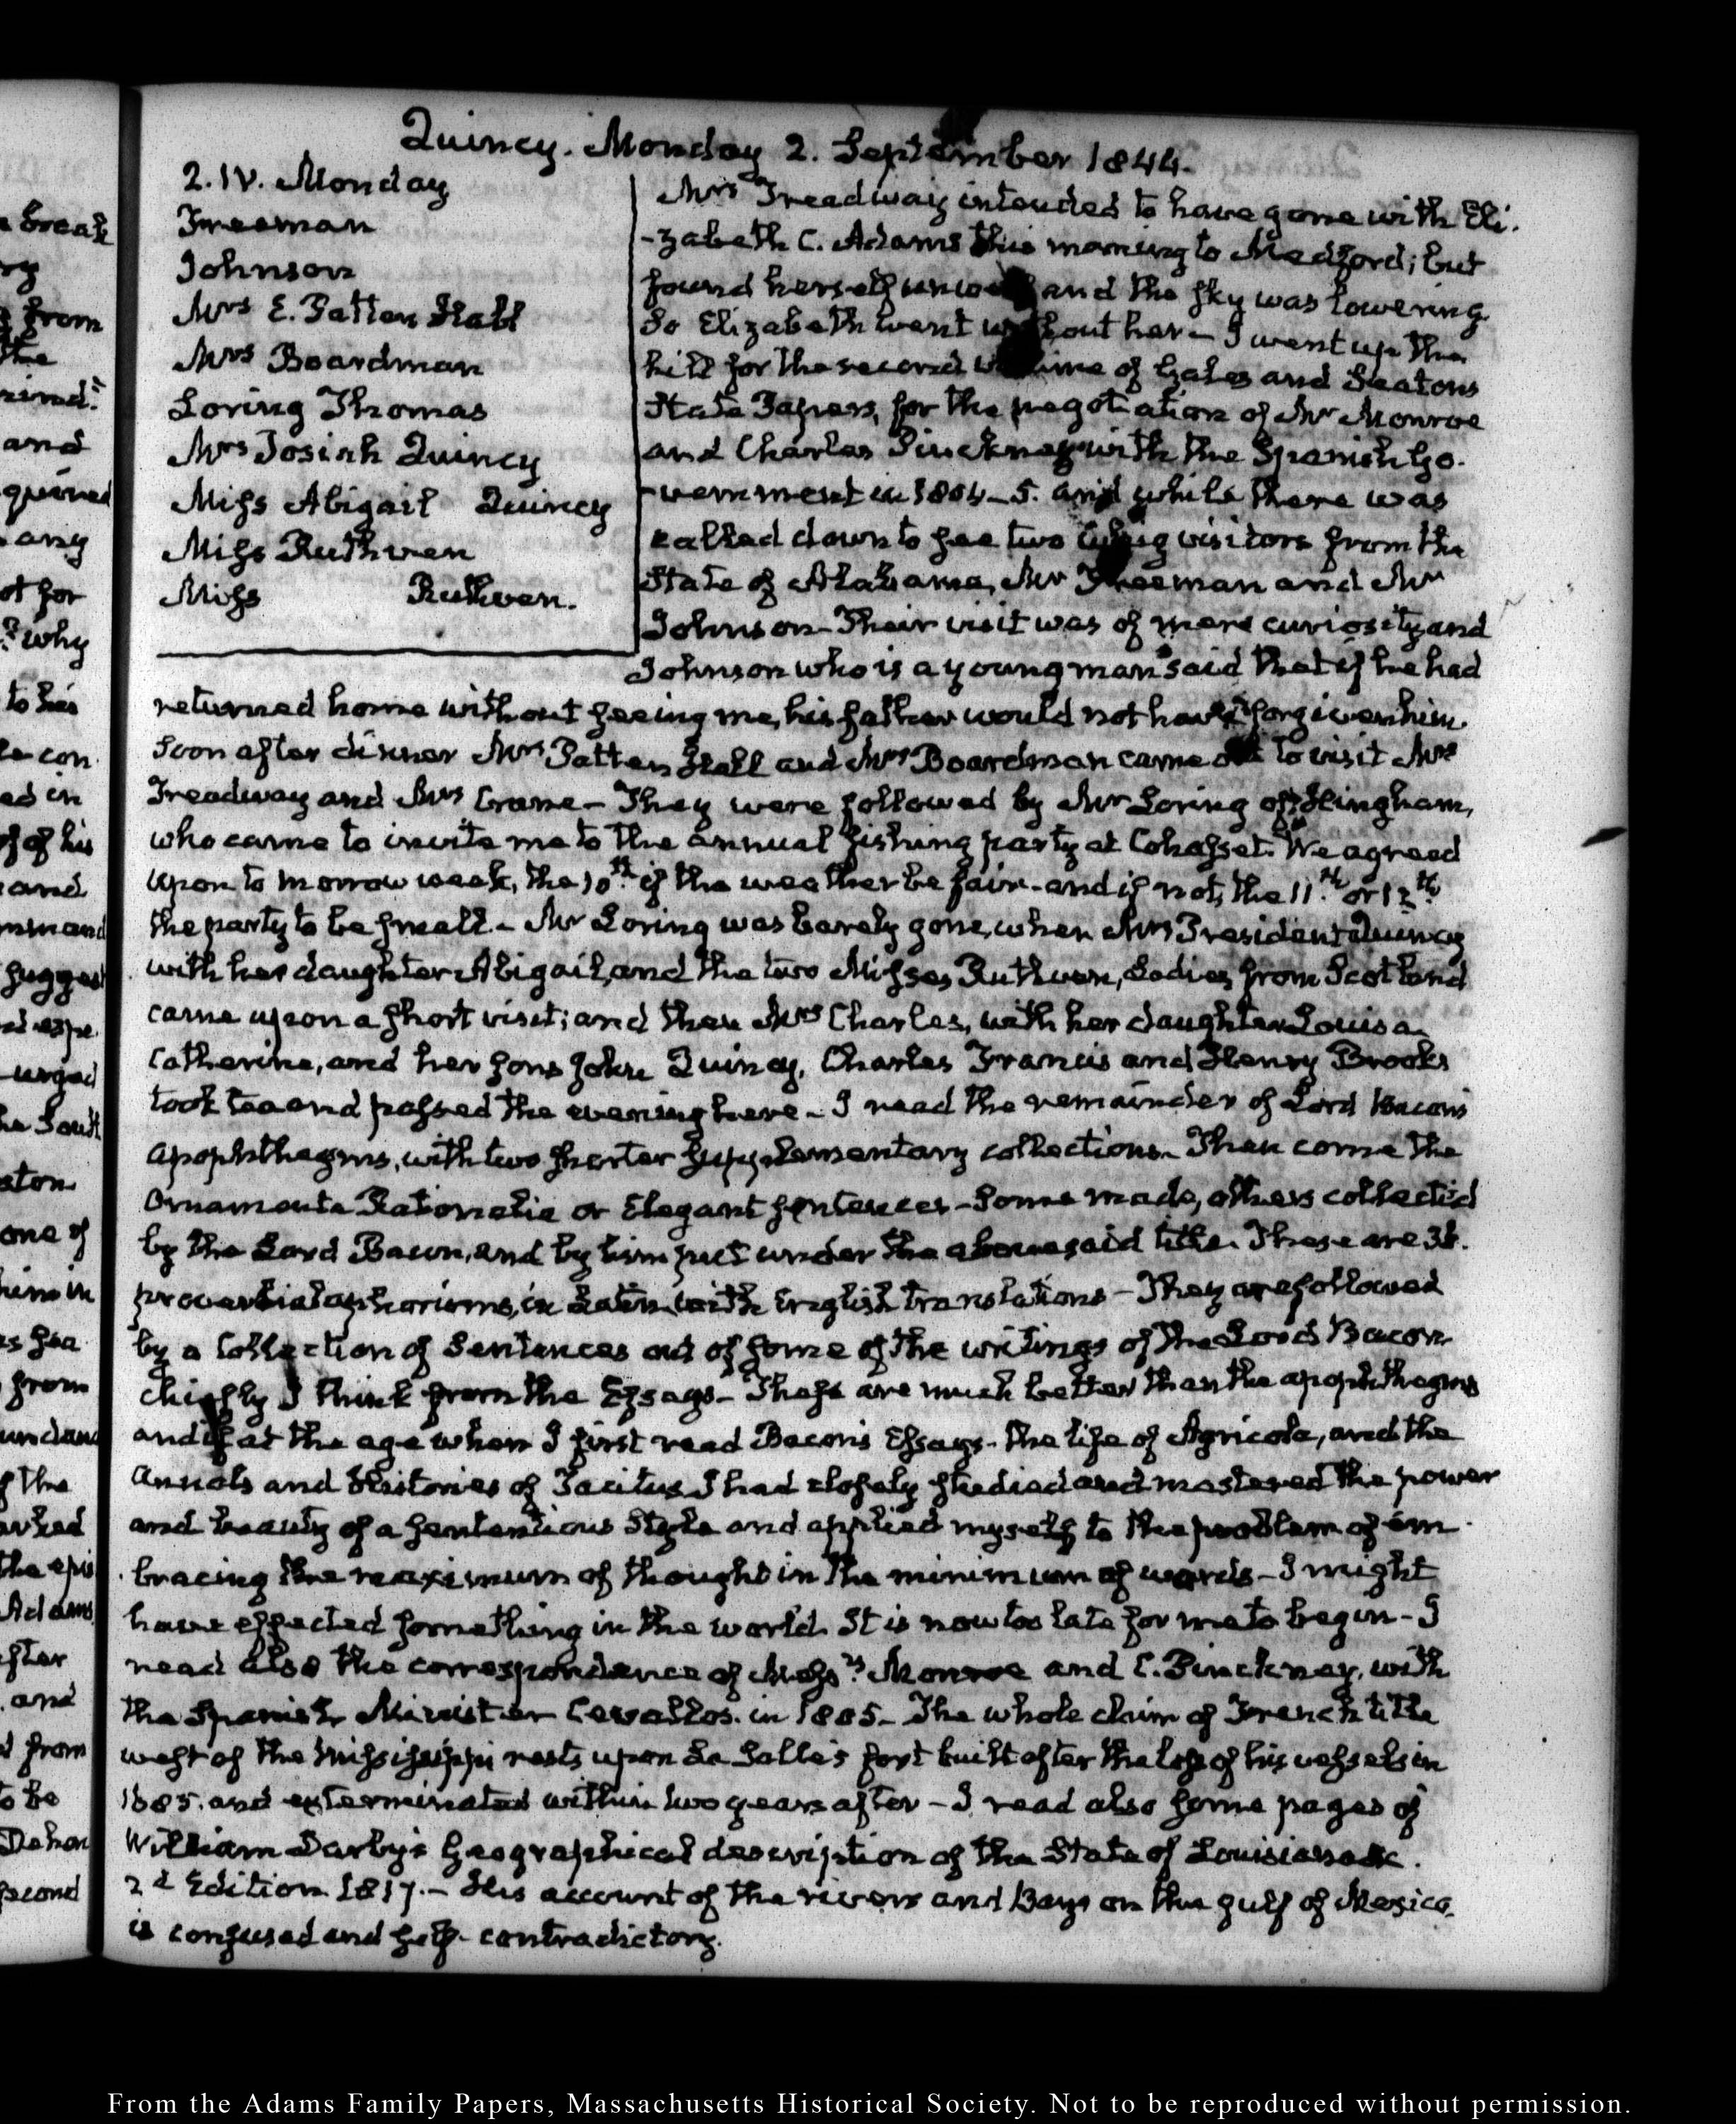 Quincy. Monday 2. September 1844.
2. IV. Monday
Freeman
Johnson
Mrs E. Patten Hall
Mrs Boardman
Loring Thomas
Mrs Josiah Quincy
Miss Abigail Quincy
Miss Ruthven
Miss Ruthven.
Mrs Treadway intended to have gone with Eli-
-zabeth C. Adams this morning to Medford; but
found herself unwell and the sky was lowering
So Elizabeth went without her – I went up the
hill for the second volume of Gales and Seatons
State Papers, for the negotiation of Mr Monroe
and Charles Pinckney with the Spanish Go-
-vernment in 1804–5. and while there was
called down to see two whig visitors from the
State of Alabama, Mr Freeman and Mr
Johnson – Their visit was of mere curiosity and
Johnson who is a young man said that if he had
returned home without seeing me, his father would not have forgiven him.
Soon after dinner Mrs Patten Hall and Mrs Boardman came out to visit Mrs
Treadway and Mrs Crane – They were followed by Mr Loring of Hingham,
who came to invite me to the annual fishing party at Cohasset. We agreed
upon to morrow week, the 10th if the weather be fair – and if not, the 11th or 12th
the party to be small – Mr Loring was barely gone, when Mrs President Quincy
with her daughter Abigail, and the two Misses Ruthven, Ladies from Scotland
came upon a short visit; and then Mrs Charles, with her daughter Louisa
Catherine, and her sons John Quincy, Charles Francis and Henry Brooks
took tea and passed the evening here – I read the remainder of Lord Bacon's
apophthegms, with two shorter supplementary collections – Then come the
Ornamenta Rationalia or Elegant Sentences – Some made, others collected
by the Lord Bacon, and by him put under the abovesaid title. These are
proverbial aphorisms, in Latin with English translations – They are followed
by a Collection of Sentences out of some of the writings of the Lord Bacon
chiefly I think from the Essays – These are much better than the apophthegms
and if at the age when I first read Bacon's Essays – the life of Agricola, and the
Annals and Histories of Tacitus I had closely studied and mastered the power
and beauty of a sententious Style and applied myself to the problem of em-
bracing the maximum of thought in the minimum of words – I might
have effected something in the world. It is now too late for me to begin – I
read also the correspondence of Messrs Monroe and C. Pinckney, with
the Spanish Minister Cevallos. in 1805 – The whole claim of French title
west of the Mississippi rests upon La Salle's fort built after the loss of his vessels in
1685. and exterminated within two years after – I read also some pages of
William Darby's Geographical description of the State of Louisiana &c.
2d Edition 1817. – His account of the rivers and Bays on the gulf of Mexico
is confused and self-contradictory.
From the Adams Family Papers, Massachusetts Historical Society. Not to be reproduced without permission.